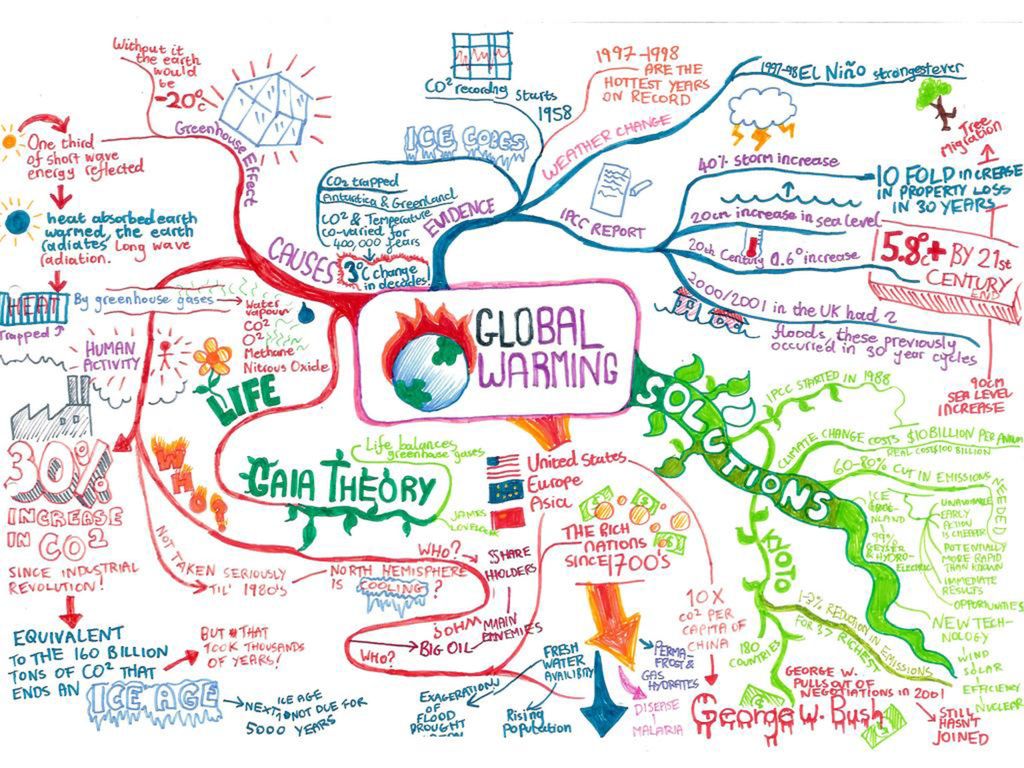 GLOBAL
WARMING
CAUSES
Greenhouse Effect
Without it
the earth
would
be
-20°c
One third
of short wave
energy reflected
heat absorbed earth
warmed, the earth
radiates Long wave
radiation.
HEAT
Trapped
By greenhouse gases
Water
vapour
CO2
O2
Methane
Nitrous Oxide
HUMAN
ACTIVITY
30%
INCREASE
IN CO2
SINCE INDUSTRIAL
REVOLUTION!
EQUIVALENT
TO THE 160 BILLION
TONS OF CO2 THAT
ENDS AN
ICE AGE
BUT THAT
TOOK THOUSANDS
OF YEARS!
NEXT ICE AGE
NOT DUE FOR
5000 YEARS
LIFE
GAIA THEORY
Life balances
greenhouse gases
JAMES
WHO?
NOT TAKEN SERIOUSLY
TIL' 1980's
NORTH HEMISPHERE
IS COOLING?
WHO?
SHARE
HOLDERS
MAIN ENEMIES
BIG OIL
WHO?
United States
Europe
Asia
THE RICH
NATIONS
SINCE 1700'S
10X
CO2 PER
CAPITA OF
CHINA
George W. Bush
FRESH
WATER
AVAILIBITY
EXAGERATION
OF
FLOOD
DROUGHT
Rising
Population
PERMA-
FROST &
GAS
HYDRATES
DISEASE
MALARIA
EVIDENCE
CO2 recording starts
1958
ICE CORES
CO2 trapped
Antartica & Greenland
CO2 & Temperature
co-varied for
400,000 years
3°c change
in decades!
WEATHER CHANGE
1997-1998
ARE THE
HOTTEST YEARS
ON RECORD
1997-98 EL NIÑO strongest ever
IPCC REPORT
40% storm increase
10 FOLD INCREASE
IN PROPERTY LOSS
IN 30 YEARS
20cm increase in sea level
20th Century 0.6° increase
5.8°+ BY 21st
CENTURY
END
Tree
Migration
90cm
SEA LEVEL
INCREASE
2000/2001 in the UK had 2
floods, these previously
occurred in 30 year cycles
SOLUTIONS
IPCC STARTED IN 1988
CLIMATE CHANGE COSTS $10 BILLION PER ANNUM
REAL COST $100 BILLION
60-80% CUT IN EMISSIONS
NEEDED
UNAVOIDABLE
EARLY
ACTION
IS CHEAPER
POTENTIALLY
MORE RAPID
THAN KNOWN
IMMEDIATE
RESULTS
OPPORTUNITIES
99%
GEYSER
& HYDRO-
ELECTRIC
NEW TECH-
NOLOGY
WIND
SOLAR
EFFICIENCY
NUCLEAR
KYOTO
1-3% REDUCTION IN EMISSIONS
FOR 37 RICHEST
180
COUNTRIES
GEORGE W.
PULLS OUT OF
NEGOTIATIONS IN 2001
STILL
HASN'T
JOINED